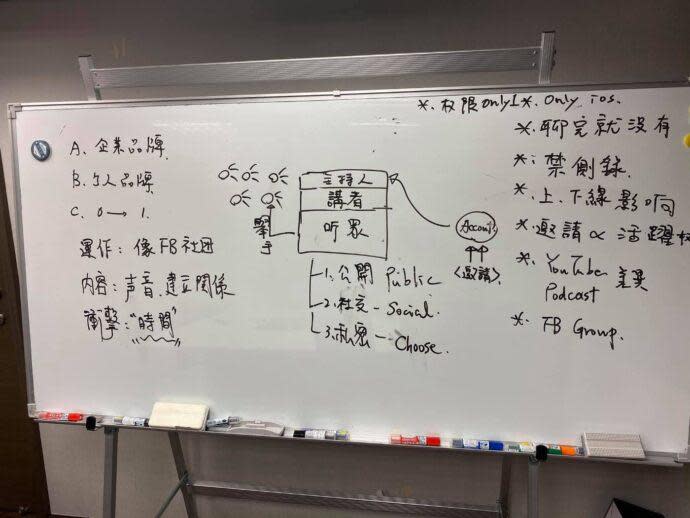 A、企業品牌
B、个人品牌
C、0 → 1.
運作：像FB社团
内容：声音、建立關係
衝擊："時間"
主持人
講者
听眾
舉手
Account
<邀請>
1.公開 Public
2.社交 - Social.
3.私密 - Choose.
*. 权限only1 *. Only ios.
*. 聊完就没有
*. 禁側錄.
*. 上、下線影响
*. 邀請 ∝ 活躍
*. YouTube 差異
Podcast
*. FB Group.